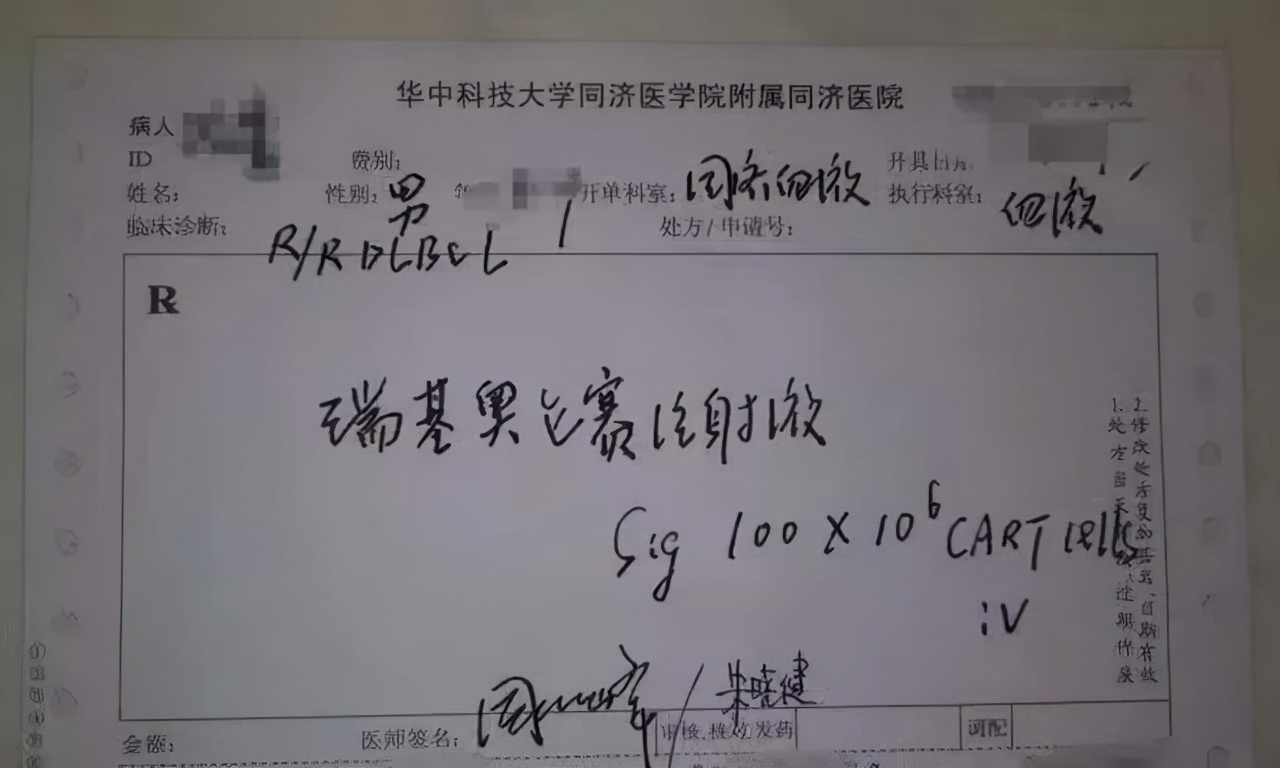 华中科技大学同济医学院附属同济医院
病人
ID 费别:
姓名: 性别: 男 开单科室: 同济血液 执行科室: 血液
临床诊断: R/R DLBCL 处方/申请号:
R
瑞基奥仑赛注射液
Sig 100 X 10⁶ CART cells
iv
1.处方当天有效过期作废
金额: 医师签名: 审核,核对,发药 调配